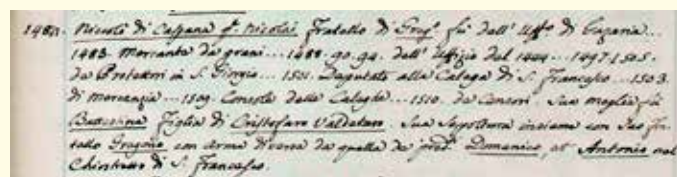 1480. Niccolò di Caspana q. Nicolai fratello di Greg.º fù dell' Uff.º di Gazaria...
1483. Mercante da grani...1488.90.94. dell' Uffizio del 1444...1497.1505.
da Protettori in S. Giorgio...1501. Deputato alla Calega di S. Francesco...1503.
di Mercanzia...1509. Console delle Caleghe...1510. da Censori. Sua moglie fù
Figlia di Cristofaro Valdetaro. Sua Sepoltura insieme con suo fra-
tello Gregorio con arma diversa da quella de pred.ⁱ Domenico, et Antonio nel
Chiostretto di S. Francesco.